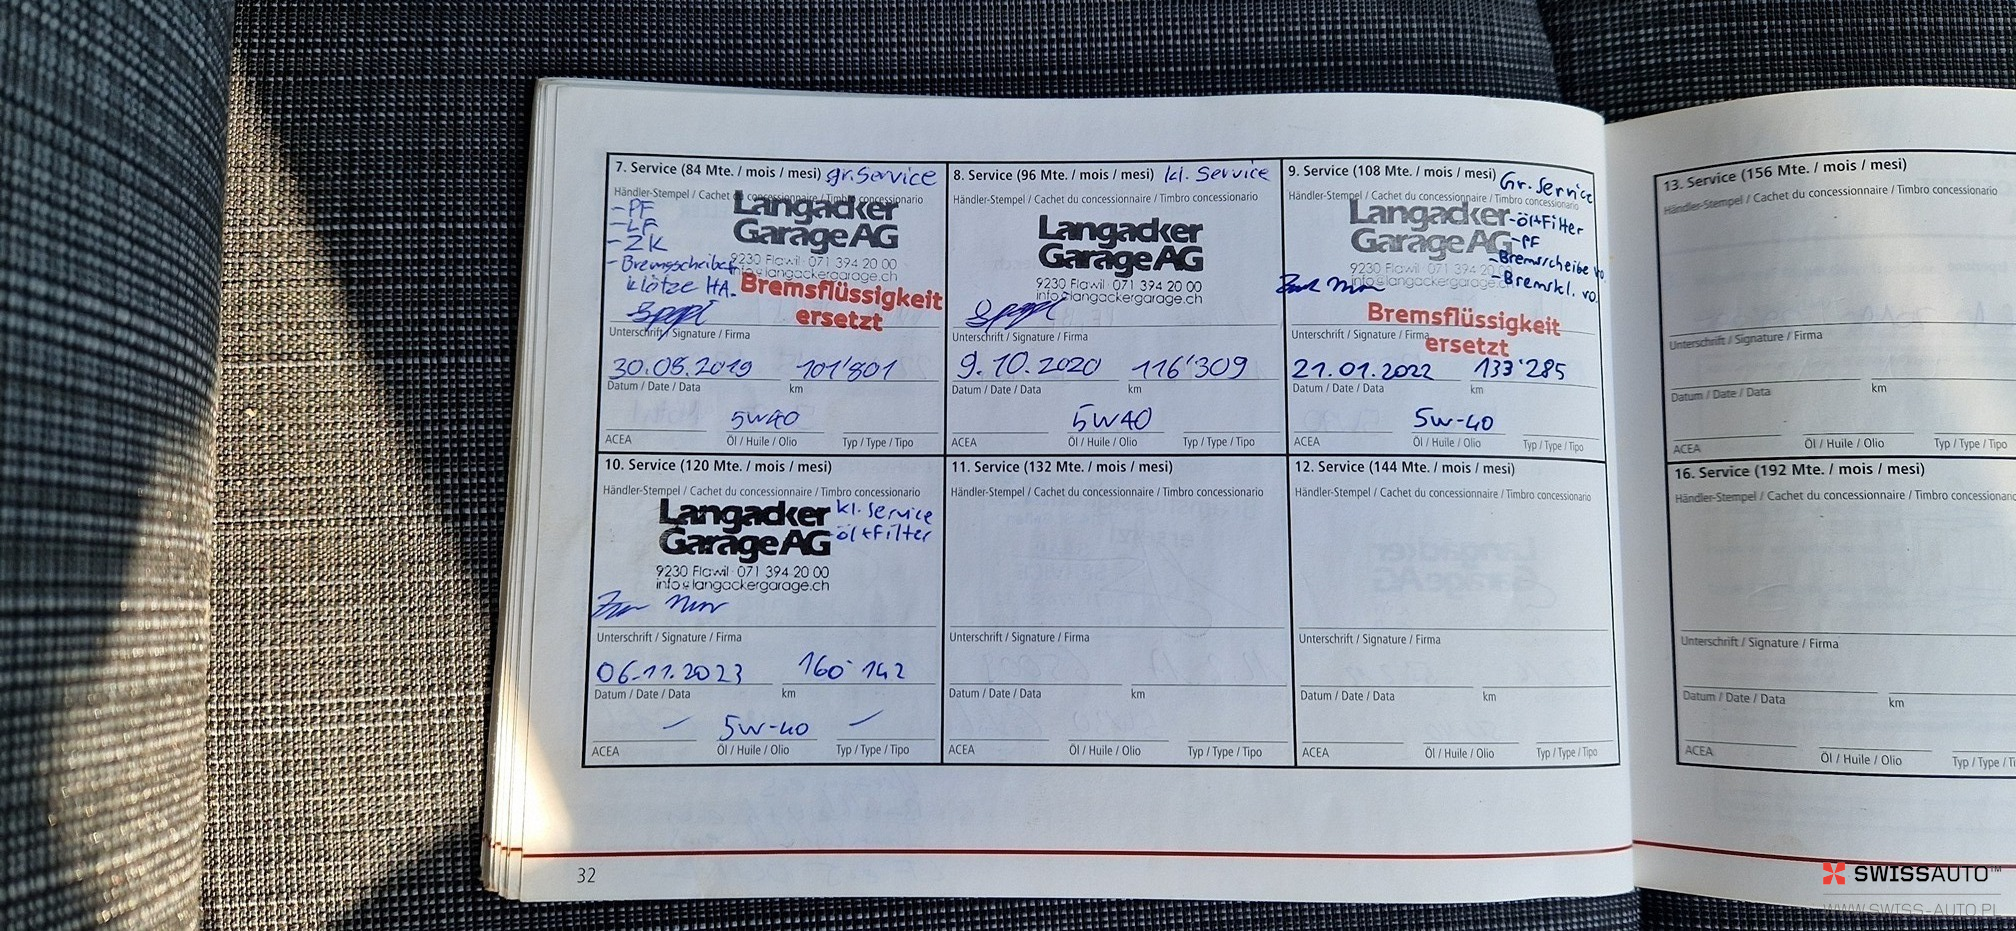 7. Service (84 Mte. / mois / mesi) gr. Service
Händler-Stempel / Cachet du concessionnaire / Timbro concessionario
- PF
- LF
- ZK
- Bremsscheiben
klötze HA.
Langacker
Garage AG
9230 Flawil · 071 394 20 00
info@langackergarage.ch
Bremsflüssigkeit
ersetzt
Unterschrift / Signature / Firma
30.08.2019 101'801
Datum / Date / Data km
5W40
ACEA Öl / Huile / Olio Typ / Type / Tipo
8. Service (96 Mte. / mois / mesi) kl. Service
Händler-Stempel / Cachet du concessionnaire / Timbro concessionario
Langacker
Garage AG
9230 Flawil · 071 394 20 00
info@langackergarage.ch
Unterschrift / Signature / Firma
9.10.2020 116'309
Datum / Date / Data km
5W40
ACEA Öl / Huile / Olio Typ / Type / Tipo
9. Service (108 Mte. / mois / mesi) Gr. Service
Händler-Stempel / Cachet du concessionnaire / Timbro concessionario
Langacker
Garage AG
9230 Flawil · 071 394 20
info@langackergarage.c
- öl+Filter
- PF
- Bremsscheibe vo
- Bremskl. vo.
Bremsflüssigkeit
ersetzt
Unterschrift / Signature / Firma
21.01.2022 133'285
Datum / Date / Data km
5W-40
ACEA Öl / Huile / Olio Typ / Type / Tipo
10. Service (120 Mte. / mois / mesi)
Händler-Stempel / Cachet du concessionnaire / Timbro concessionario
Langacker kl. Service
Garage AG - öl+Filter
9230 Flawil · 071 394 20 00
info@langackergarage.ch
Unterschrift / Signature / Firma
06.11.2023 160'142
Datum / Date / Data km
– 5W-40 –
ACEA Öl / Huile / Olio Typ / Type / Tipo
11. Service (132 Mte. / mois / mesi)
Händler-Stempel / Cachet du concessionnaire / Timbro concessionario
Unterschrift / Signature / Firma
Datum / Date / Data km
ACEA Öl / Huile / Olio Typ / Type / Tipo
12. Service (144 Mte. / mois / mesi)
Händler-Stempel / Cachet du concessionnaire / Timbro concessionario
Unterschrift / Signature / Firma
Datum / Date / Data km
ACEA Öl / Huile / Olio Typ / Type / Tipo
32
13. Service (156 Mte. / mois / mesi)
Händler-Stempel / Cachet du concessionnaire / Timbro concessionario
Unterschrift / Signature / Firma
Datum / Date / Data km
ACEA Öl / Huile / Olio Typ / Type / Tipo
16. Service (192 Mte. / mois / mesi)
Händler-Stempel / Cachet du concessionnaire / Timbro concessionario
Unterschrift / Signature / Firma
Datum / Date / Data km
ACEA Öl / Huile / Olio Typ / Type / Ti
SWISSAUTO™
WWW.SWISS-AUTO.PL